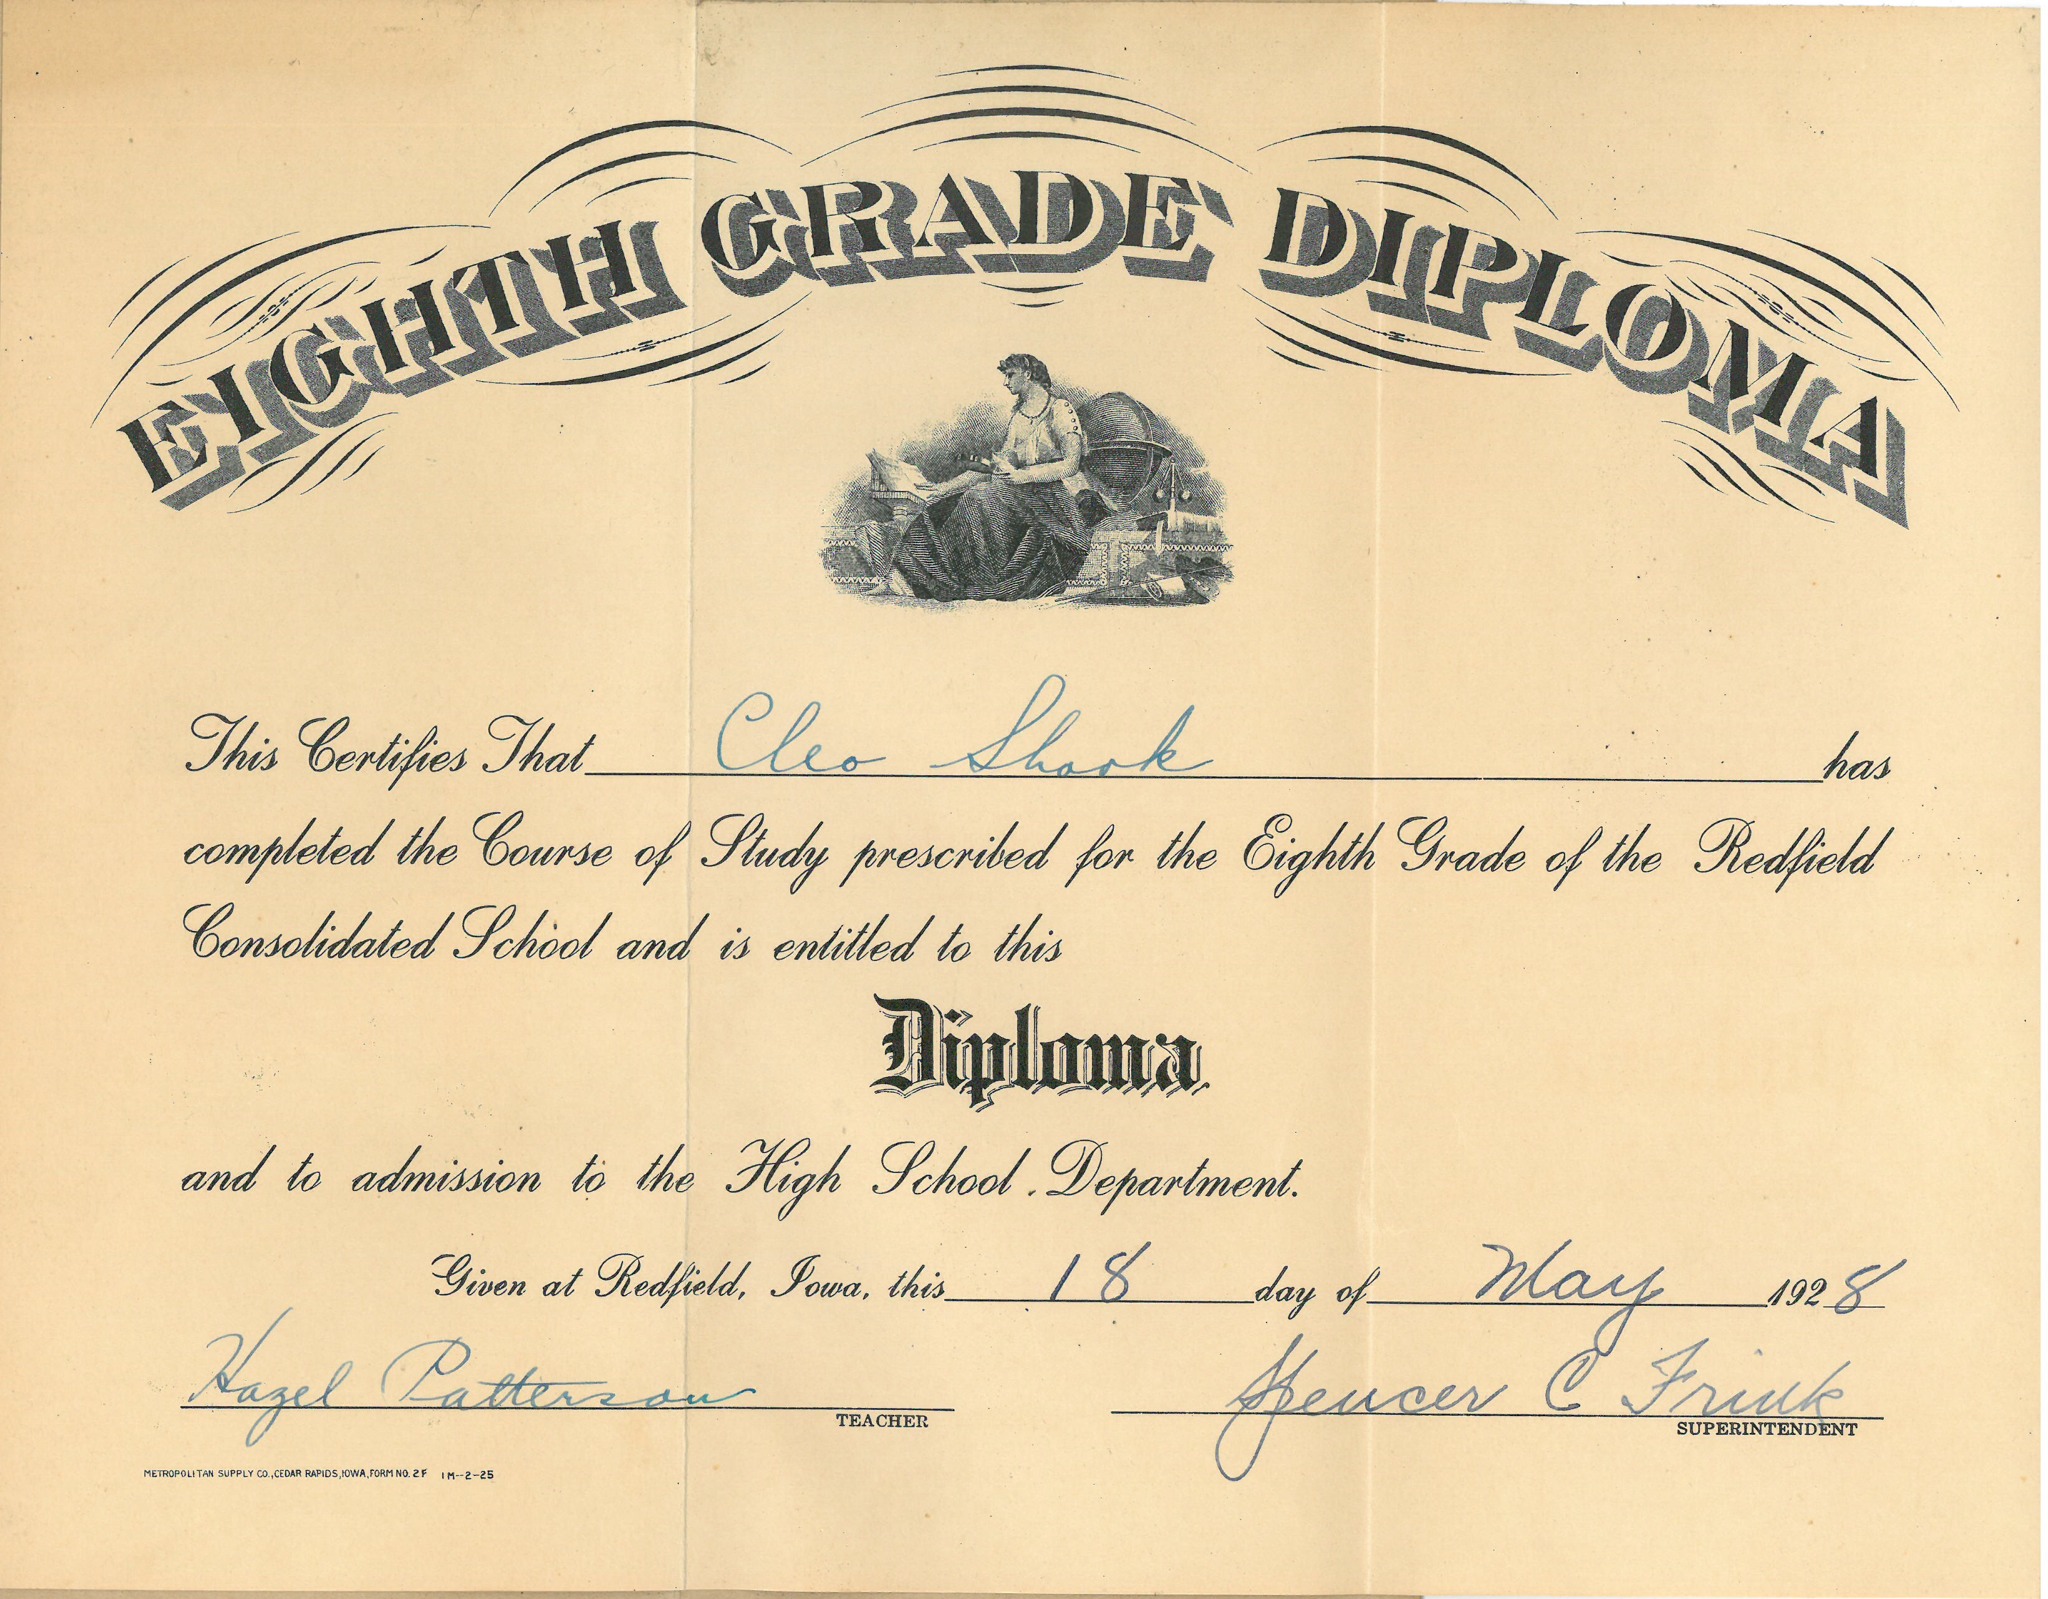 EIGHTH GRADE DIPLOMA
This Certifies That Cleo Shook has
completed the Course of Study prescribed for the Eighth Grade of the Redfield
Consolidated School and is entitled to this
Diploma
and to admission to the High School Department.
Given at Redfield, Iowa, this 18 day of May 1928
Hazel Patterson Spencer C Frink
TEACHER SUPERINTENDENT
METROPOLITAN SUPPLY CO., CEDAR RAPIDS, IOWA, FORM NO. 2F 1M--2-25